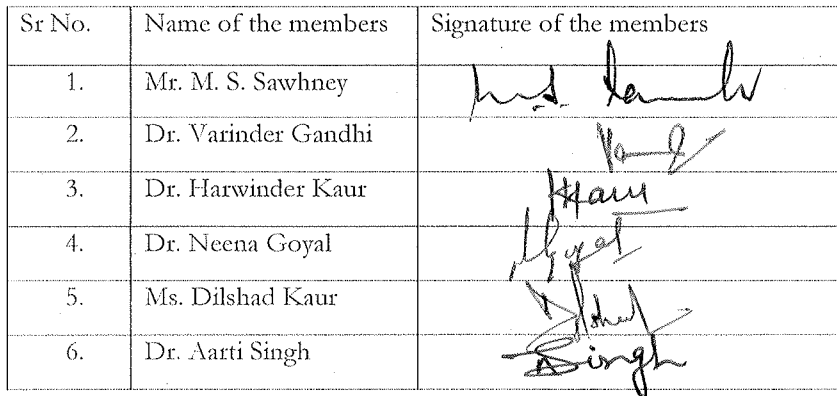 Sr No. Name of the members Signature of the members
1. Mr. M. S. Sawhney
2. Dr. Varinder Gandhi
3. Dr. Harwinder Kaur
4. Dr. Neena Goyal Goyal
5. Ms. Dilshad Kaur Dilshad
6. Dr. Aarti Singh Singh